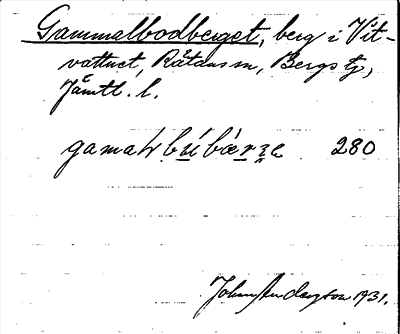 Gammalbodberget, berg i Vit-
vattnet, Rätans sn, Bergs tg,
Jämtl. l.
gamaḷ bú bærʒe 280
John Anderzon 1931.